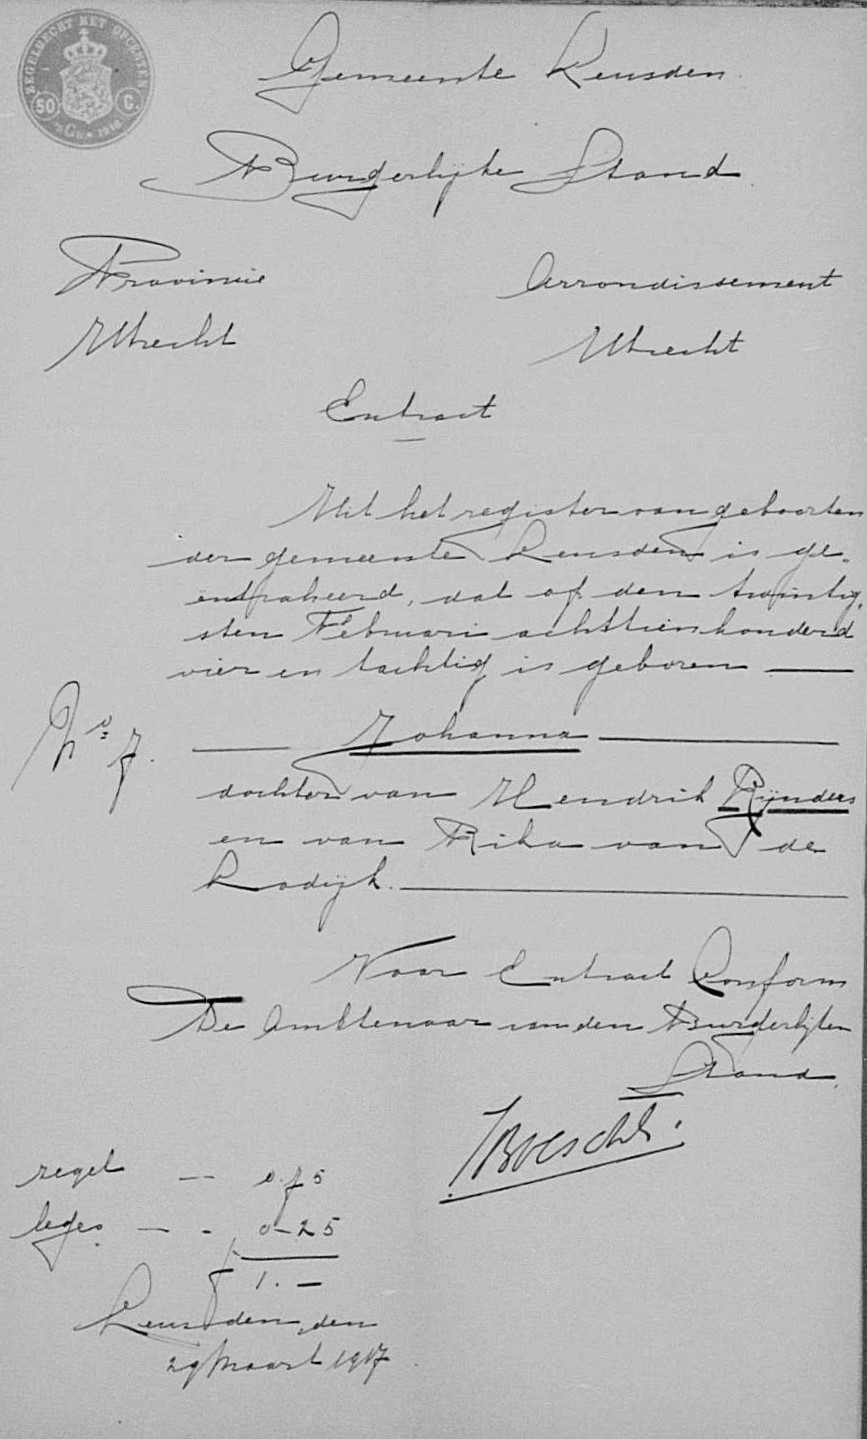 ZEGELRECHT MET OPCENTEN
50 C.
Gemeente Leusden
Burgerlijke Stand
Provincie Arrondissement
Utrecht Utrecht
Extract
Uit het register van geboorten
der gemeente Leusden is ge-
extraheerd, dat op den twintig-
sten Februari achttienhonderd
vier en tachtig is geboren
No 7. Johanna
dochter van Hendrik Rijnders
en van Rika van de
Ladijk.
Voor Extract Conform
De Ambtenaar van den Burgerlijken
Stand.
zegel 0.75
leges 0-25
f 1.-
Leusden, den
29 Maart 1917